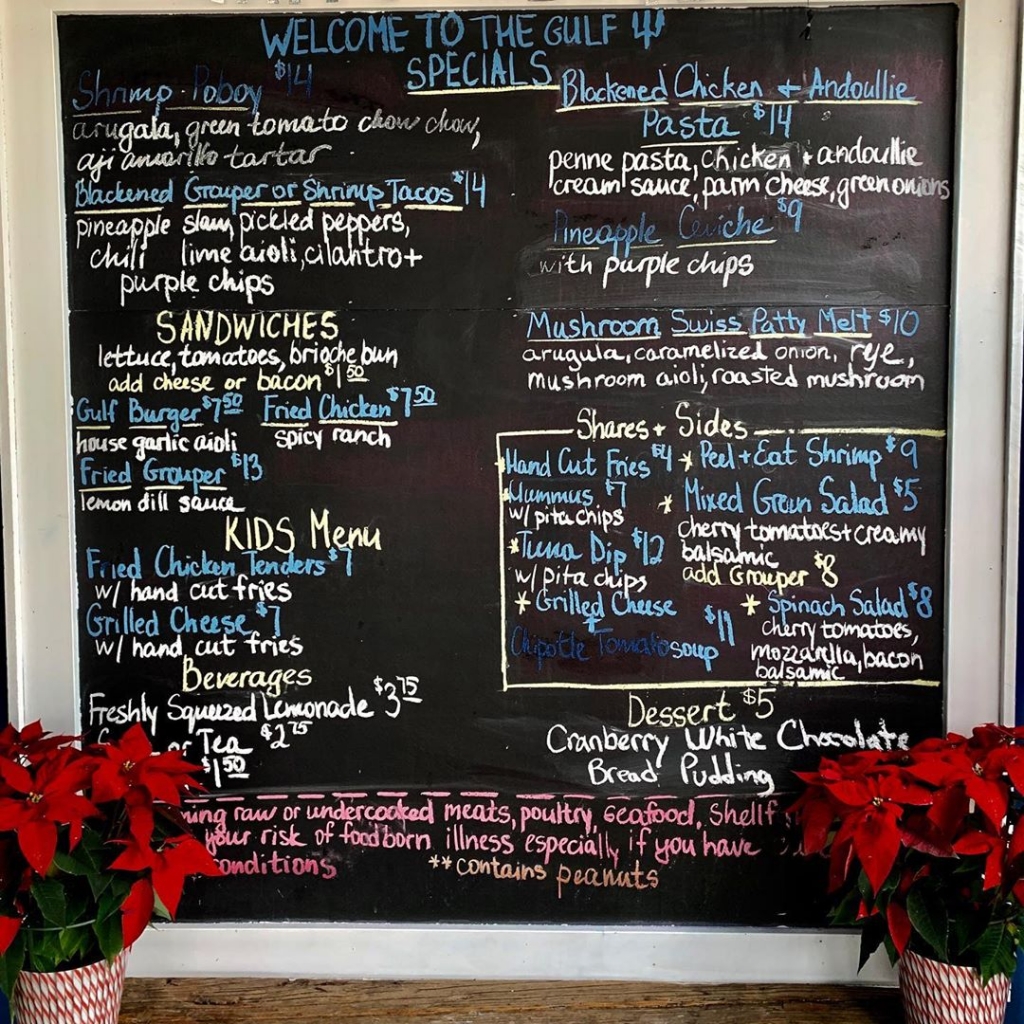 WELCOME TO THE GULF
SPECIALS
Shrimp Poboy $14
arugala, green tomato chow chow,
aji amarillo tartar
Blackened Grouper or Shrimp Tacos $14
pineapple slaw, pickled peppers,
chili lime aioli, cilantro +
purple chips
Blackened Chicken + Andoullie
Pasta $14
penne pasta, chicken + andoullie
cream sauce, parm cheese, green onions
Pineapple Ceviche $9
with purple chips
SANDWICHES
lettuce, tomatoes, brioche bun
add cheese or bacon $1.50
Gulf Burger $7.50 Fried Chicken $7.50
house garlic aioli spicy ranch
Fried Grouper $13
lemon dill sauce
KIDS Menu
Fried Chicken Tenders $7
w/ hand cut fries
Grilled Cheese $7
w/ hand cut fries
Beverages
Freshly Squeezed Lemonade $3.75
or Tea $2.75
$1.50
Mushroom Swiss Patty Melt $10
arugula, caramelized onion, rye,
mushroom aioli, roasted mushroom
Shares + Sides
*Hand Cut Fries $4
*Hummus $7
w/ pita chips
*Tuna Dip $12
w/ pita chips
*Grilled Cheese
+
Chipotle Tomato soup $11
*Peel + Eat Shrimp $9
*Mixed Green Salad $5
cherry tomatoes + creamy
balsamic
add Grouper $8
*Spinach Salad $8
cherry tomatoes,
mozzarella, bacon
balsamic
Dessert $5
Cranberry White Chocolate
Bread Pudding
raw or undercooked meats, poultry, seafood,
your risk of foodborn illness especially if you have
conditions **contains peanuts